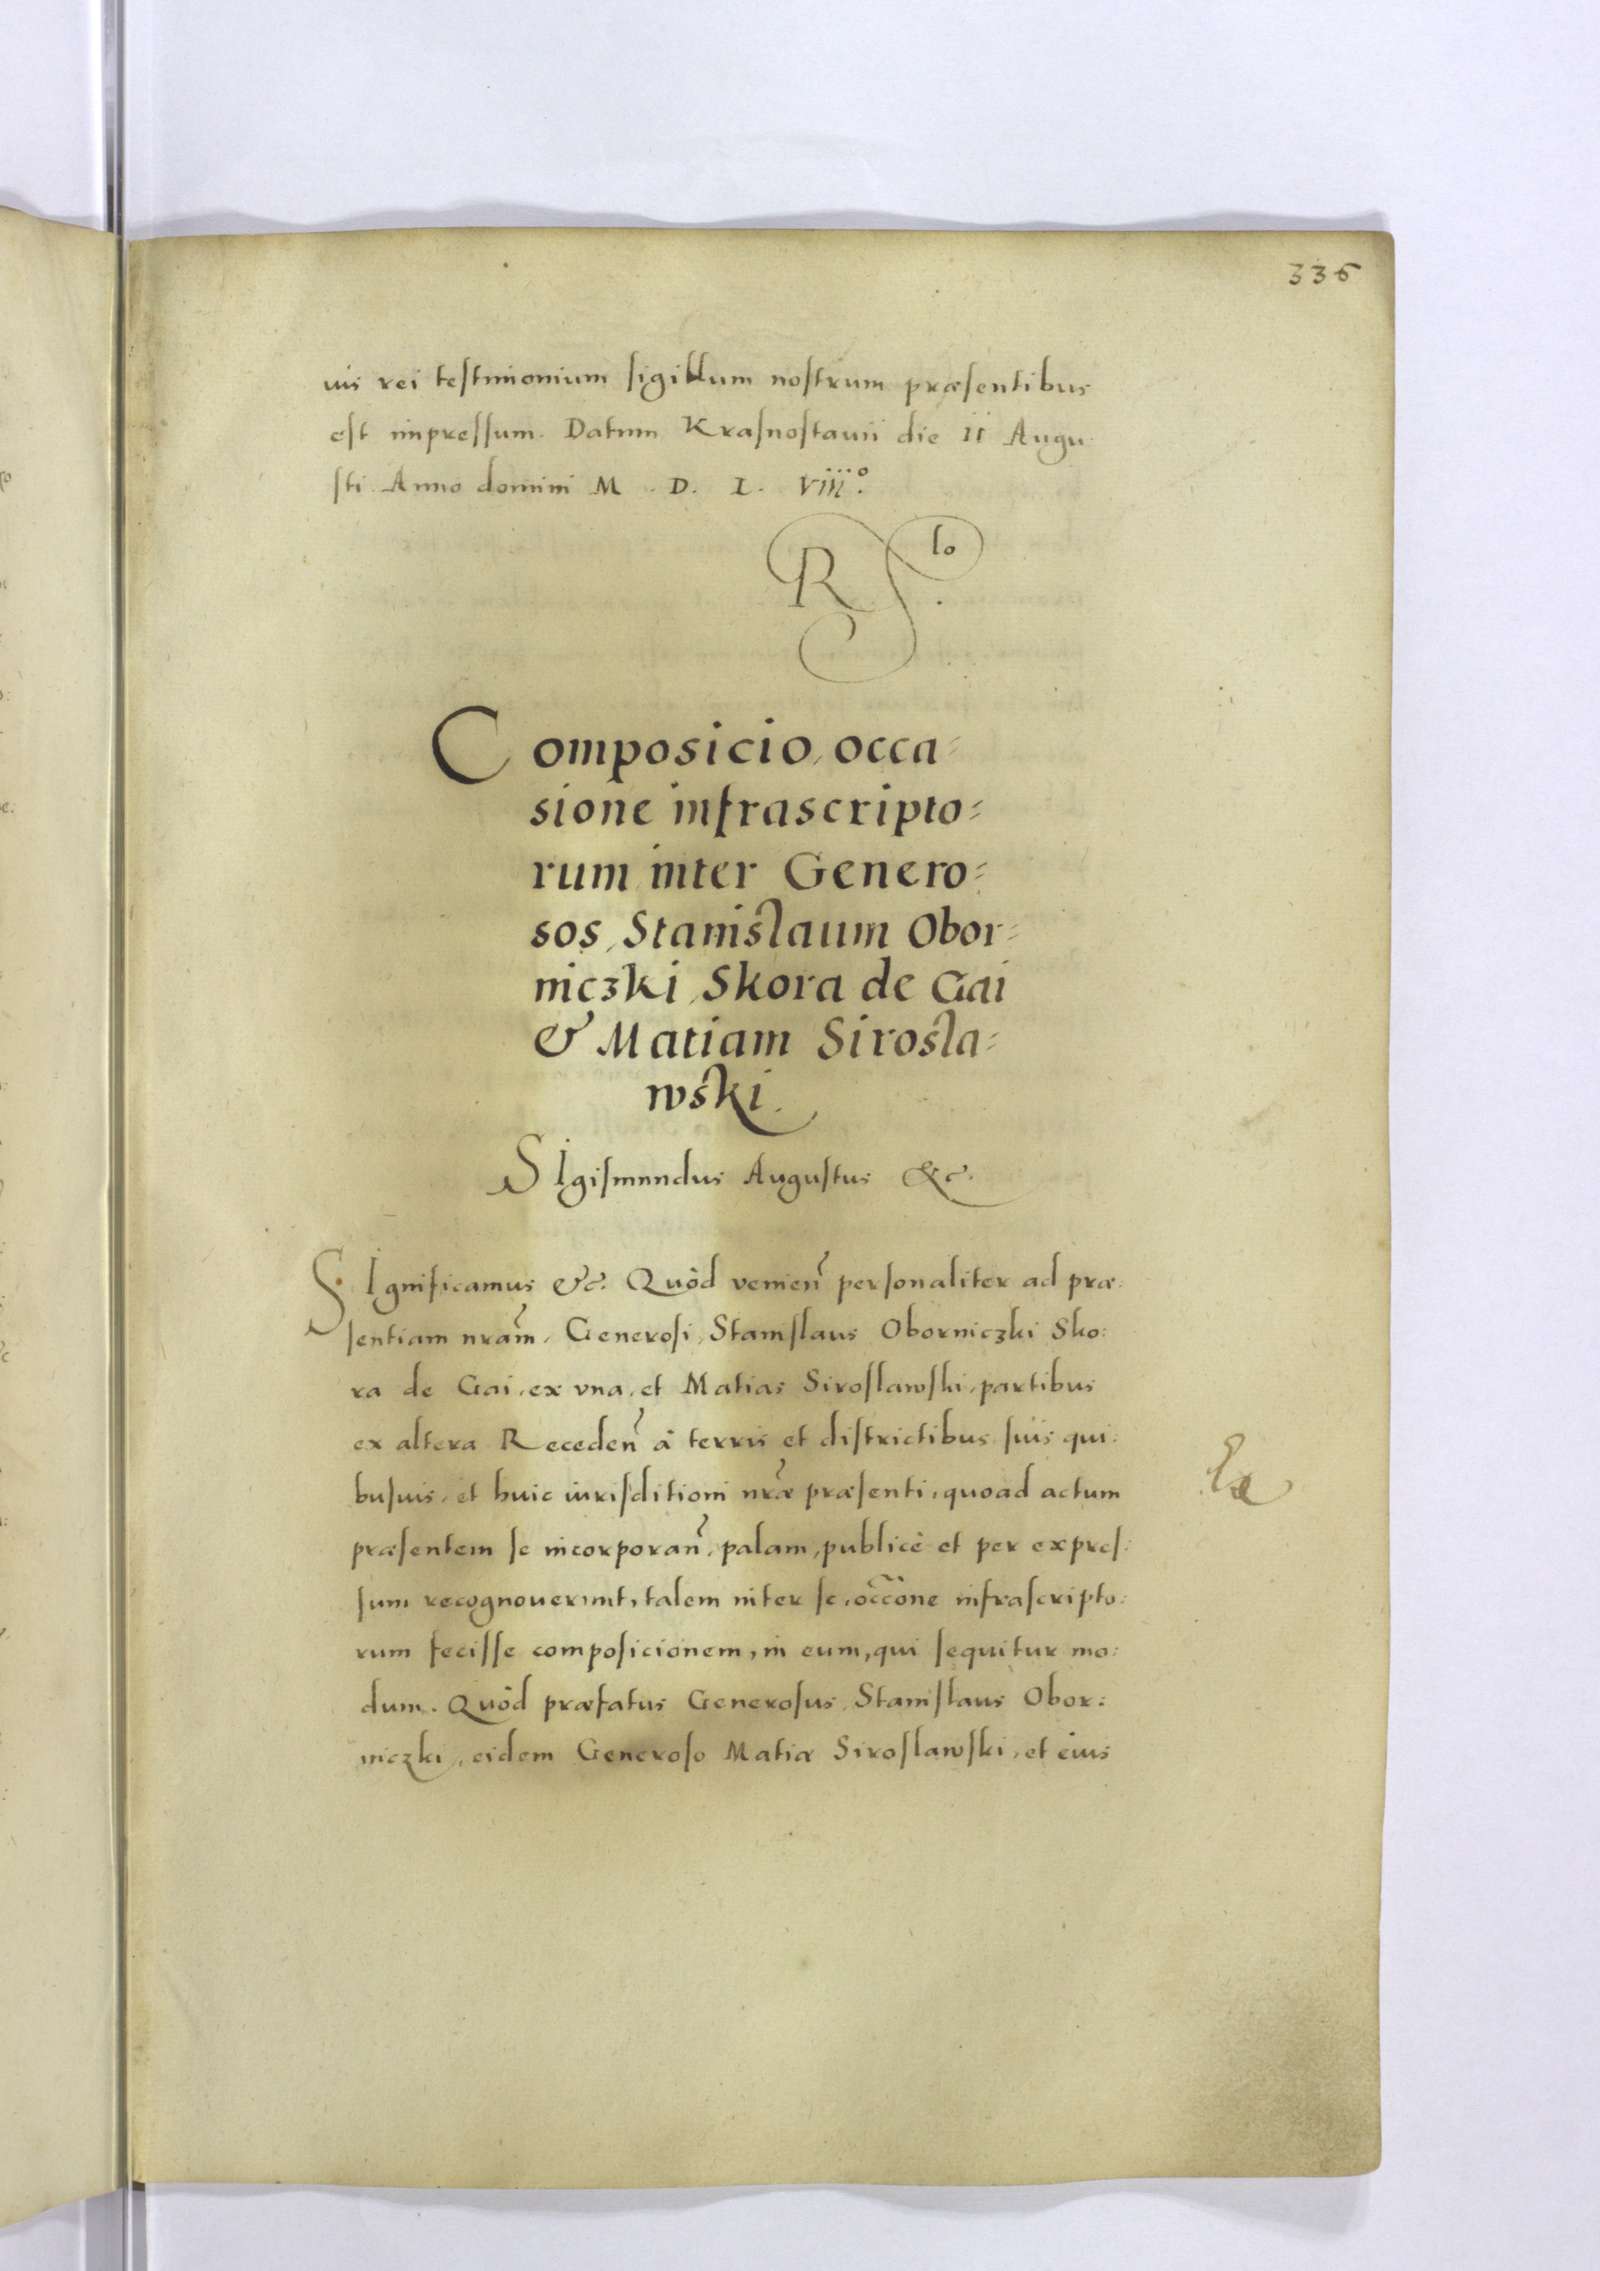 336
uis rei testimonium sigillum nostrum præsentibus
est impressum. Datum Krasnostauii die 11 Augu
sti Anno domini M. D. L. viii°.
RS lo.
Composicio, occa=
sione infrascripto=
rum inter Genero=
sos, Stanislaum Obor=
niczki, Skora de Gai
& Matiam Sirosla=
wski.
SIgismundus Augustus &c.
SIgnificamus &c. Quòd venien̄ personaliter ad præ:
sentiam nram̄, Generosi, Stanislaus Oborniczki Sko:
ra de Gai, ex vna, et Matias Siroslawski, partibus
ex altera Receden̄ à terris et districtibus suis qui:
busuis, et huic iurisditioni nrǣ præsenti, quoad actum
præsentem se incorporan̄, palam, publicè et per expres:
sum recognouerunt, talem inter se, occ̄one infrascripto:
rum fecisse composicionem, in eum, qui sequitur mo:
dum. Quòd præfatus Generosus, Stanislaus Obor:
niczki, eidem Generoso Matiæ Siroslawski, et eius